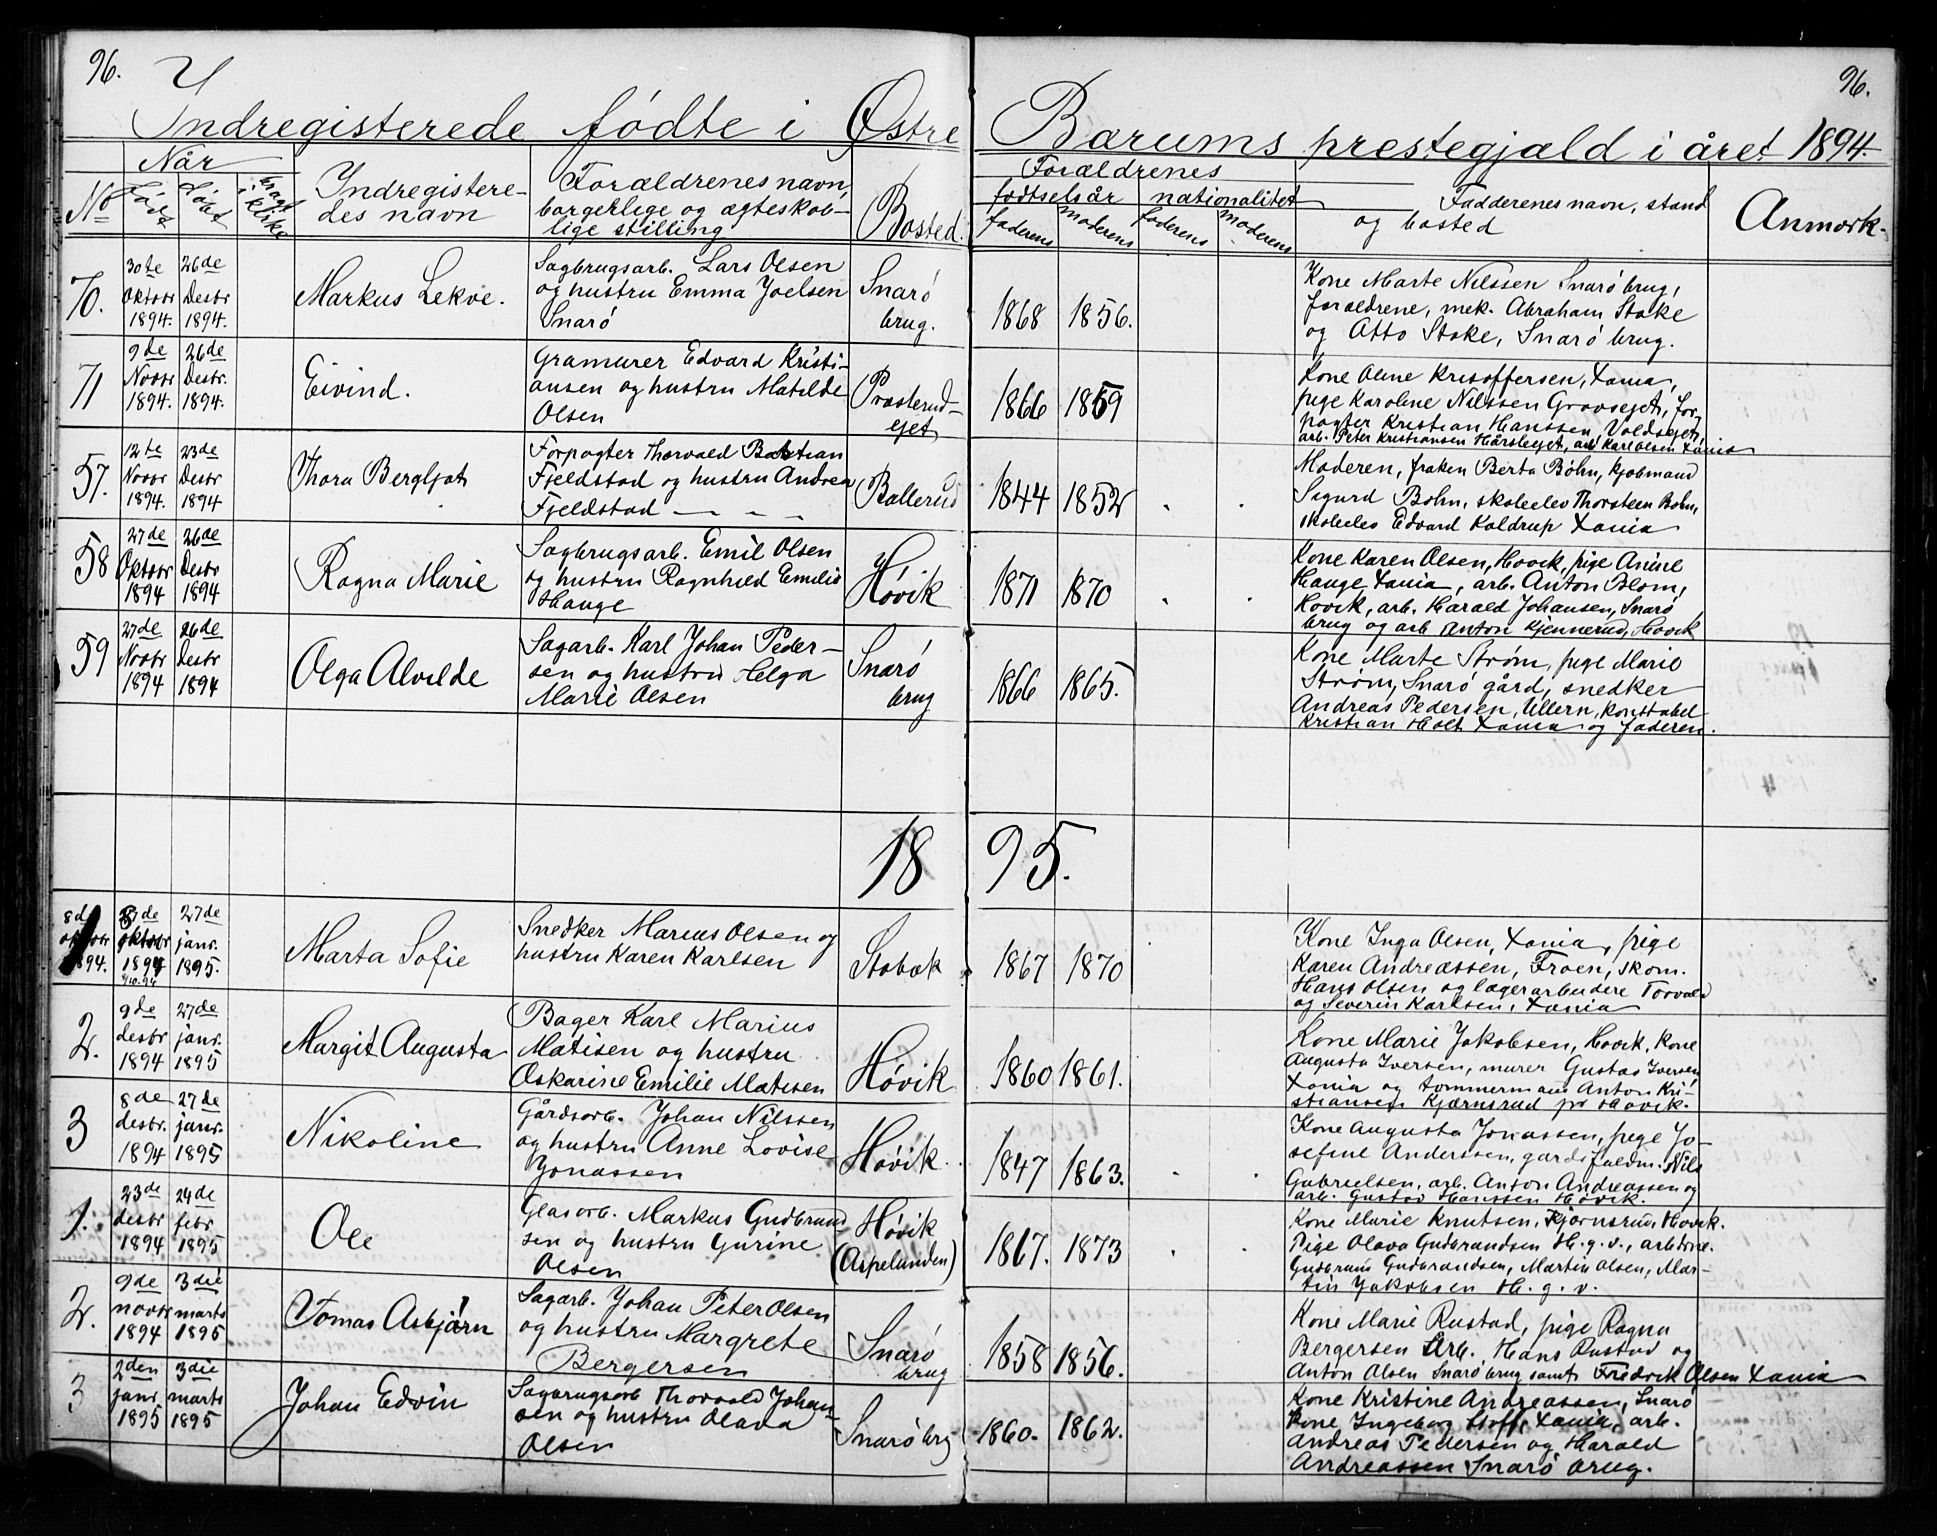 96.
96.
Indregisterede fødte i Østre Bærums prestegjæld i året 1894.
No
Når
Født
Døbt
bragt i kirke
Indregistere-
des navn
Forældrenes navn,
borgerlige og ægteskab-
lige stilling
Bosted.
Forældrenes
fødtselsår
nationalitet
faderens
moderens
faderens
moderens
Fadderenes navn, stand
og bosted
Anmærk.
70.
30te
Oktobr
1894.
26de
Desbr
1894.
Markus Lekve.
Sagbrugsarb. Lars Olsen
og hustru Emma Joelsen
Snarø
Snarø
brug.
1868
1856.
Kone Marte Nilssen Snarø brug,
forældrene, mek. Abraham Stake
og Atto Stake, Snarø brug.
71
9de
Novbr
1894.
26de
Desbr.
1894.
Eivind.
Gramurer Edvard Kristi-
ansen og hustru Matilde
Olsen
Præsterud-
ejet
1866
1859
Kone Oline Kristoffersen, Xania,
pige Karoline Nilssen Gravsejet, for
pagter Kristian Hanssen, Voldsejet,
arb. Peter Kristiansen Hårslejet, arb Karl Olsen Xania
57.
12te
Novbr
1894.
23de
Desbr
1894
Thora Bergljot
Forpagter Thorvald Bastian
Fjeldstad og hustru Andrea
Fjeldstad
Ballerud
1844
1852
Moderen, frøken Berta Bøhn, kjøbmand
Sigurd Bøhn, skoleelev Thorsteen Bøhn,
skoleelev Edvard Koldrup Xania
58
27de
Oktobr
1894
26de
Desbr
1894
Ragna Marie
Sagbrugsarb. Emil Olsen
og hustru Ragnhild Emilie
Hauge
Høvik
1871
1870
Kone Karen Olsen, Høvik, pige Anine
Hauge Xania, arb. Anton Blom,
Høvik, arb. Harald Johansen, Snarø
brug og arb Anton Kjennerud, Høvik
59
27de
Novbr
1894
26de
Desbr
1894
Olga Alvilde
Sagarb. Karl Johan Peder-
sen og hustru Helga
Marie Olsen
Snarø
brug
1866
1865.
Kone Marte Strøm, pige Marie
Strøm, Snarø gård, snedker
Andreas Pedersen, Ullern, konstabel
Kristian Holt Xania og faderen.
1895.
8de
oktobr
1894.
1
27de
oktobr
1894
27de
janr.
1895.
Marta Sofie
Snedker Marius Olsen og
hustru Karen Karlsen
Stabæk
1867
1870
Kone Inga Olsen, Xania, pige
Karen Andreassen, Frøen, skom.
Hans Olsen og lagerarbeidere Torvald
og Severin Karlsen, Xania
2.
9de
desbr
1894
27de
janr.
1895
Margit Augusta
Bager Karl Marius
Matisen og hustru
Oskarine Emilie Matisen
Høvik
1860
1861.
Kone Marie Jakobsen, Høvik, kone
Augusta Iversen, murer Gustav Iversen
Xania og tømmermann Anton Kri-
stiansen Kjærnsrud pr Høvik.
3
8de
desbr.
1894
27de
janr.
1895
Nikoline
Gårdsarb. Johan Nilssen
og hustru Anne Lovise
Jonassen
Høvik.
1847
1863.
Kone Augusta Jonassen, pige Jo-
sefine Anderssen, gårdsfuldm. Nils
Gabrielsen, arb. Anton Andreassen og
arb. Gustav Hanssen Høvik.
1.
23de
desbr
1894
24de
febr
1895
Ole
Glasarb. Markus Gudbrand
sen og hustru Gurine
Olsen
Høvik
(Aspelunden)
1867.
1873
Kone Marie Knutsen, Kjørnsrud, Høvik.
Pige Olava Gudbrandsen H. g. v., arbdrne.
Gudbrand Gudbrandsen, Martin Olsen, Mar-
tin Jakobsen H. g. v.
2.
9de
novbr
1894
3die
marts
1895
Tomas Asbjørn
Sagarb. Johan Peter Olsen
og hustru Margrete
Bergersen
Snarø
brug
1858
1856.
Kone Marie Rustad, pige Ragna
Bergersen Arb. Hans Rustad og
Anton Olsen Snarø brug samt Fredrik Olsen Xania
3
2den
janr
1895
3die
marts
1895
Johan Edvin
Sagbrugsarb Thorvald Johan-
sen og hustru Olava
Olsen
Snarø brg
1860.
1862.
Kone Kristine Andreassen, Snarø
Kone Ingeborg Hoff, Xania, arb.
Andreas Pedersen og Harald
Andreassen Snarø brug.